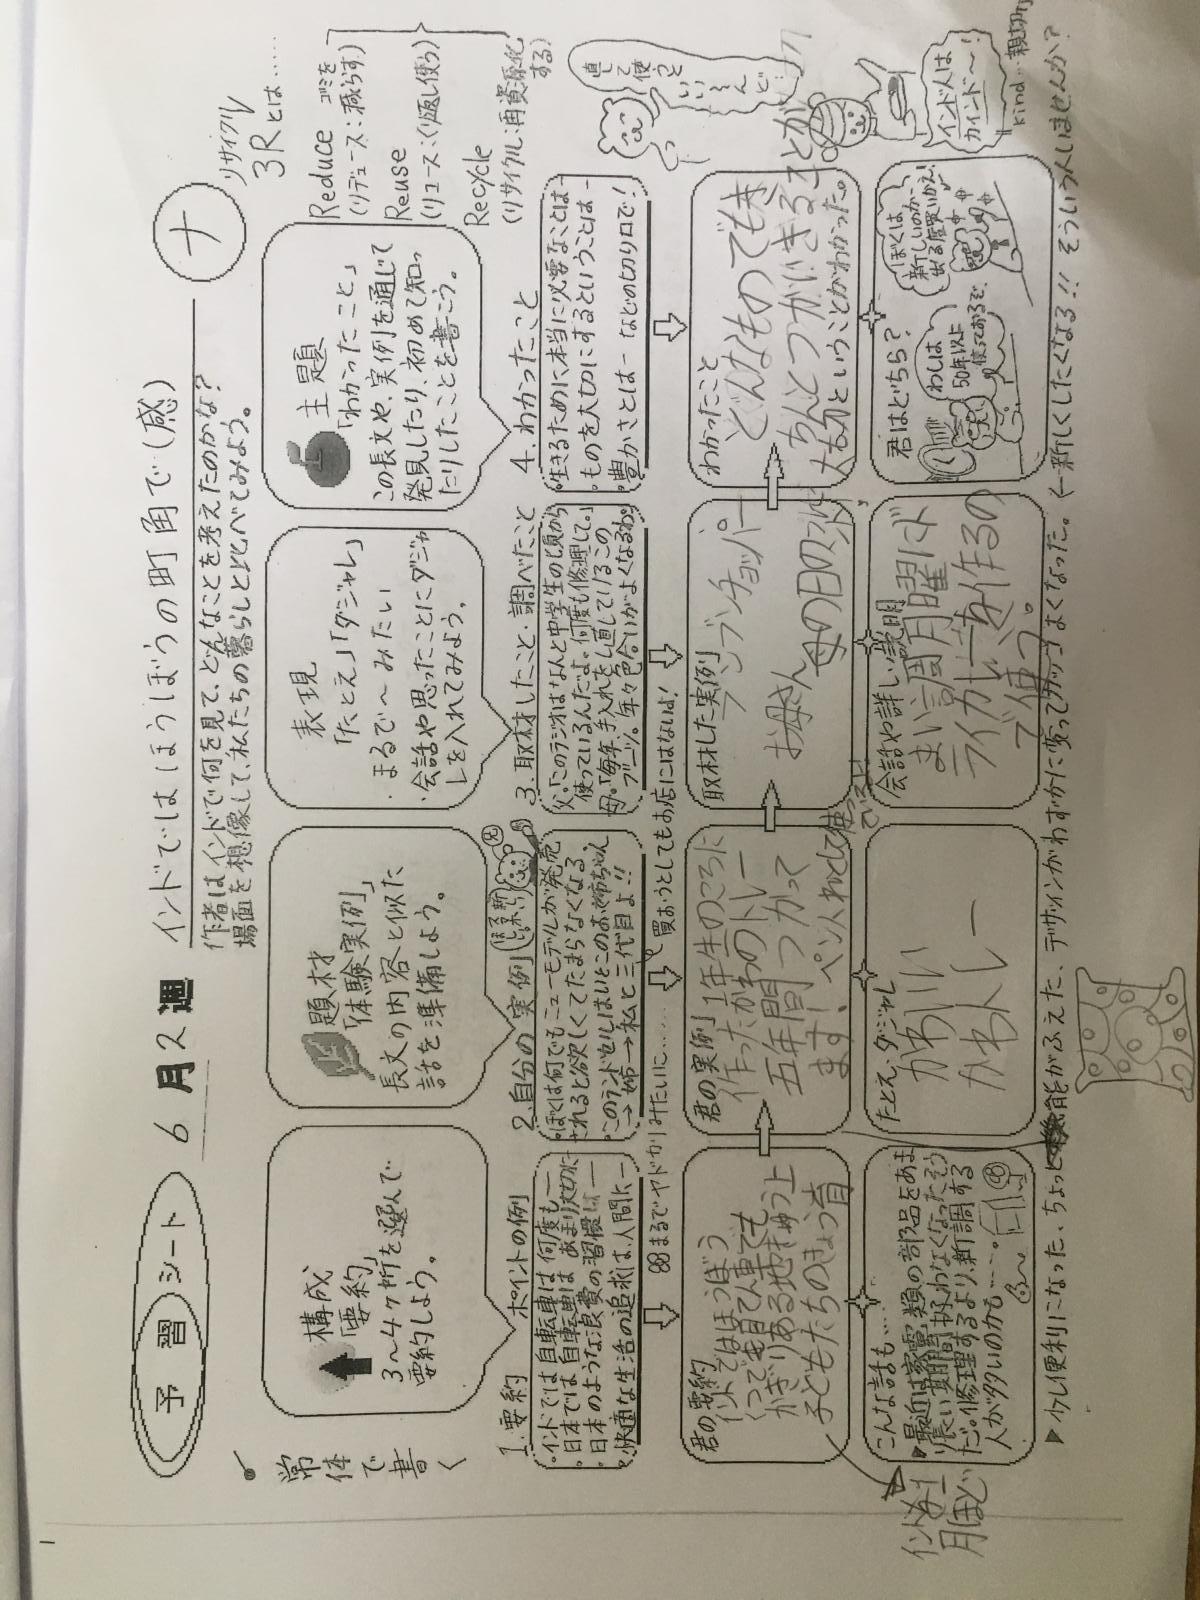 予習シート
6月2週
インドではほうぼうの町角で(感)
ナ
作者はインドで何を見て、どんなことを考えたのかな?
場面を想像して、私たちの暮らしと比べてみよう。
リサイクル
3Rとは……
Reduce ゴミを
(リデュース:減らす)
Reuse
(リユース:くり返し使う)
Recycle
(リサイクル:再資源化する)
常体で書く
構成
「要約」
3〜4ヶ所を選んで
要約しよう。
題材
「体験実例」
長文の内容と似た
話を準備しよう。
表現
「たとえ」「ダジャレ」
・まるで〜みたい
・会話や思ったことにダジャ
レを入れてみよう。
主題
「わかったこと」
この長文や、実例を通じて
発見したり、初めて知っ
たりしたことを書こう。
1.要約 ポイントの例
・インドでは自転車は何度も―
・日本では自転車はあまり大切に―
・日本のような浪費の習慣は―
・快適な生活の追求は、人間に―
2.自分の実例
・ぼくは何でもニューモデルが発売
されると欲しくてたまらなくなる。
・このランドセルはいとこのお姉ちゃん
→姉→私と三代目よ!!
まるでヤドカリみたいに……
3.取材したこと・調べたこと
父.「このラジオはなんと中学生の頃から
使っているんだよ。何度も修理して。」
母.「毎年手入れをし直しているこの
ブーツ。年々色合いがよくなるわ。
買おうとしてもお店にはないよ!
4.わかったこと
・生きるために本当に必要なことは―
・ものを大切にするということは―
・豊かさとは― などのヒ切り口で!
直して使うといいんだけど
インド人はカインド〜!
kind…親切
君の要約
インドではほうぼう
くつでも自てん車でも
かぎりある地きゅう上
子どもたちのきょう育
君の実例
1年生のころに
作ったかわのトレー
五年間つかって
ます! ペン入れとして使ってる
取材した実例
お母さん
母の日の
わかったこと
どんなものでも本
ちんとつかいきることが
大切ということがわかった。
こんな話も…
最近は家電類の部品をあま
り長い期間扱わなくなったそう
だ。修理するより、新調する
人が多いのかも…
たとえ、ダジャレ
かわいい
かわトレー
会話や詳しい説明
まい週月曜ば
ライカレーを作るの
で使う。
君はどちら?
わしは50年以上使っておるぞ。
ぼくは新しいのが出る度買いかえ!
▶少し便利になった、ちょっと機能がふえた、デザインがわずかに変ってカッコよくなった。←新しくしたくなる!! そういう人いませんか?